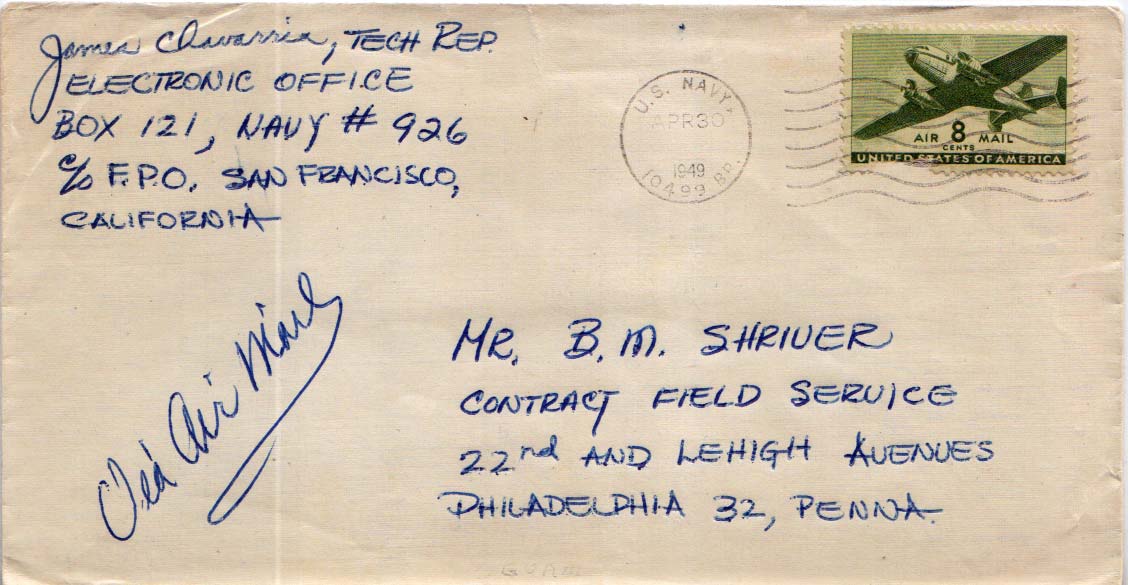 James Chavarria, TECH REP.
ELECTRONIC OFFICE
BOX 121, NAVY # 926
c/o F.P.O. SAN FRANCISCO,
CALIFORNIA
U.S. NAVY.
APR 30
1949
10499 BR.
AIR 8 MAIL
CENTS
UNITED STATES OF AMERICA
Via Air Mail
MR. B. M. SHRIVER
CONTRACT FIELD SERVICE
22nd AND LEHIGH AVENUES
PHILADELPHIA 32, PENNA.
GUAM